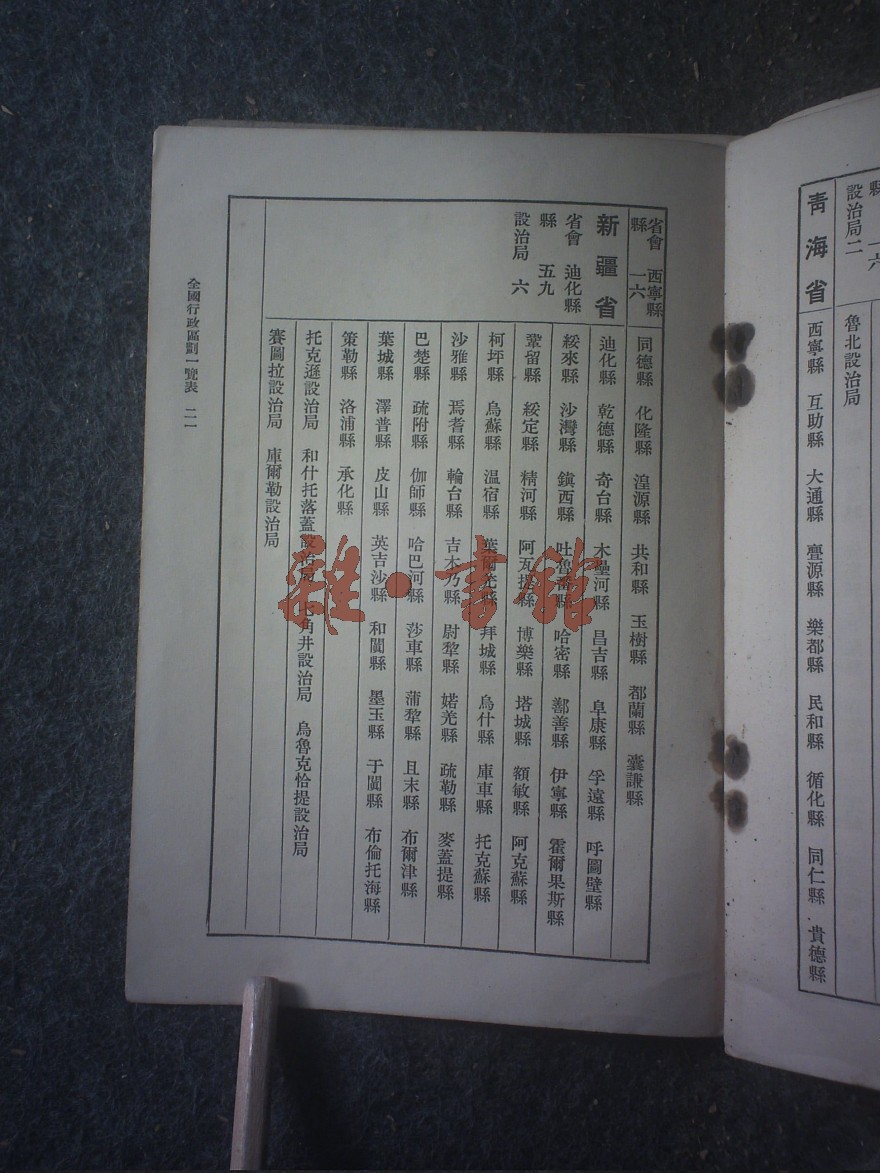 縣 一六
設治局二
魯北設治局
青海省
西寧縣 互助縣 大通縣 亹源縣 樂都縣 民和縣 循化縣 同仁縣 貴德縣
省會 西寧縣
縣 一六
同德縣 化隆縣 湟源縣 共和縣 玉樹縣 都蘭縣 囊謙縣
新疆省
省會 迪化縣
縣 五九
設治局 六
迪化縣 乾德縣 奇台縣 木壘河縣 昌吉縣 阜康縣 孚遠縣 呼圖壁縣
綏來縣 沙灣縣 鎭西縣 吐魯番縣 哈密縣 鄯善縣 伊寧縣 霍爾果斯縣
鞏留縣 綏定縣 精河縣 阿瓦提縣 博樂縣 塔城縣 額敏縣 阿克蘇縣
柯坪縣 烏蘇縣 温宿縣 葉爾羌縣 拜城縣 烏什縣 庫車縣 托克蘇縣
沙雅縣 焉耆縣 輪台縣 吉木乃縣 尉犁縣 婼羌縣 疏勒縣 麥蓋提縣
巴楚縣 疏附縣 伽師縣 哈巴河縣 莎車縣 蒲犁縣 且末縣 布爾津縣
葉城縣 澤普縣 皮山縣 英吉沙縣 和闐縣 墨玉縣 于闐縣 布倫托海縣
策勒縣 洛浦縣 承化縣
托克遜設治局 和什托落蓋設治局 七角井設治局 烏魯克恰提設治局
賽圖拉設治局 庫爾勒設治局
全國行政區劃一覽表 二一
雜·書館